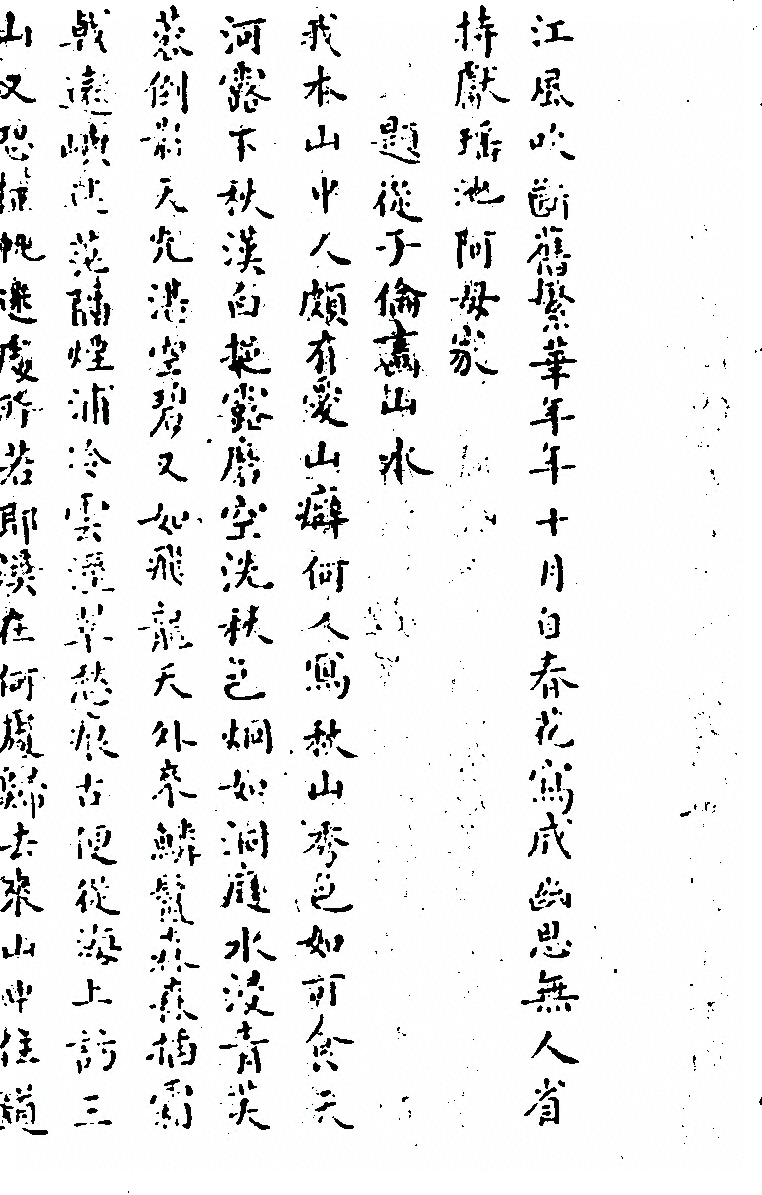 江風吹斷舊繁華年年十月自春花寫成幽思無人省
持獻瑤池阿母家
題從子倫畫山水
我本山中人頗有愛山癖何人寫秋山秀色如可食天
河露下秋漢白挺露磨空洗秋色炯如洞庭水浸青芙
蓉倒影天光湛空碧又如飛龍天外來鱗鬣森森插霜
戟遠嶼茫茫隔煙浦冷雲溼草愁痕古便從海上訪三
山又恐推帆迷處所若耶溪在何處歸去來山中住道